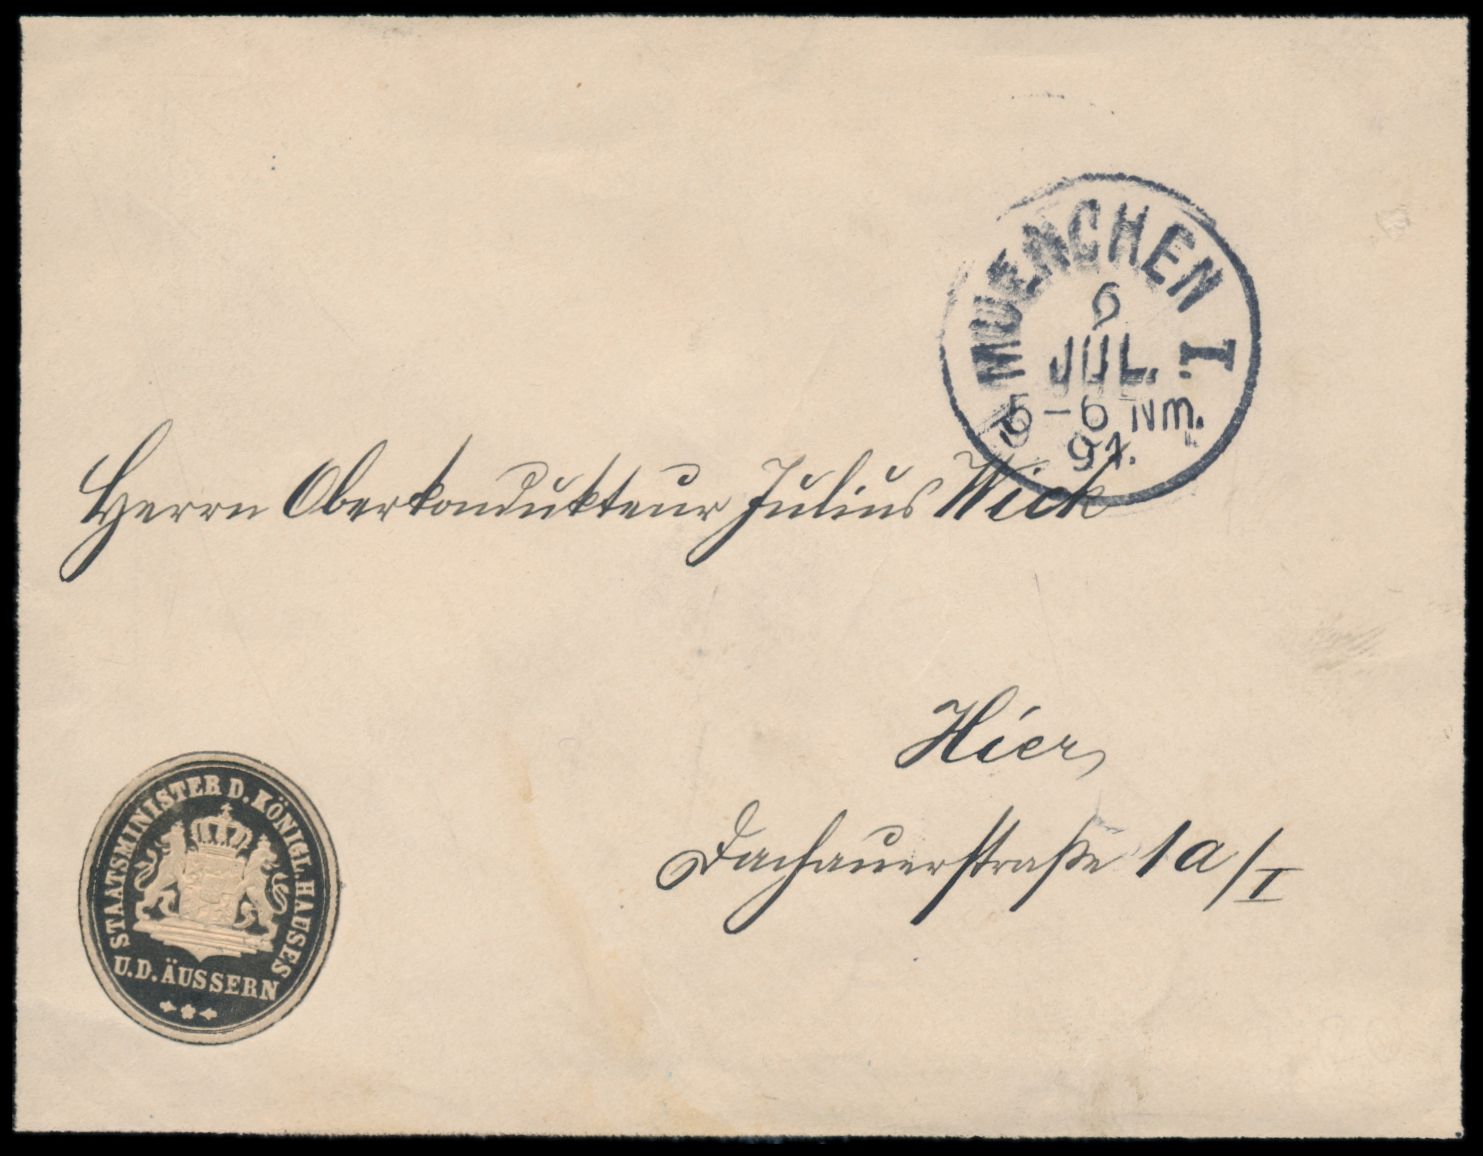 MUENCHEN I.
6
JUL.
5-6 Nm.
91.
Herrn Oberkondukteur Julius Wick
Hier,
Dachauerstraße 1a/I
STAATSMINISTER D. KÖNIGL. HAUSES
U. D. ÄUSSERN